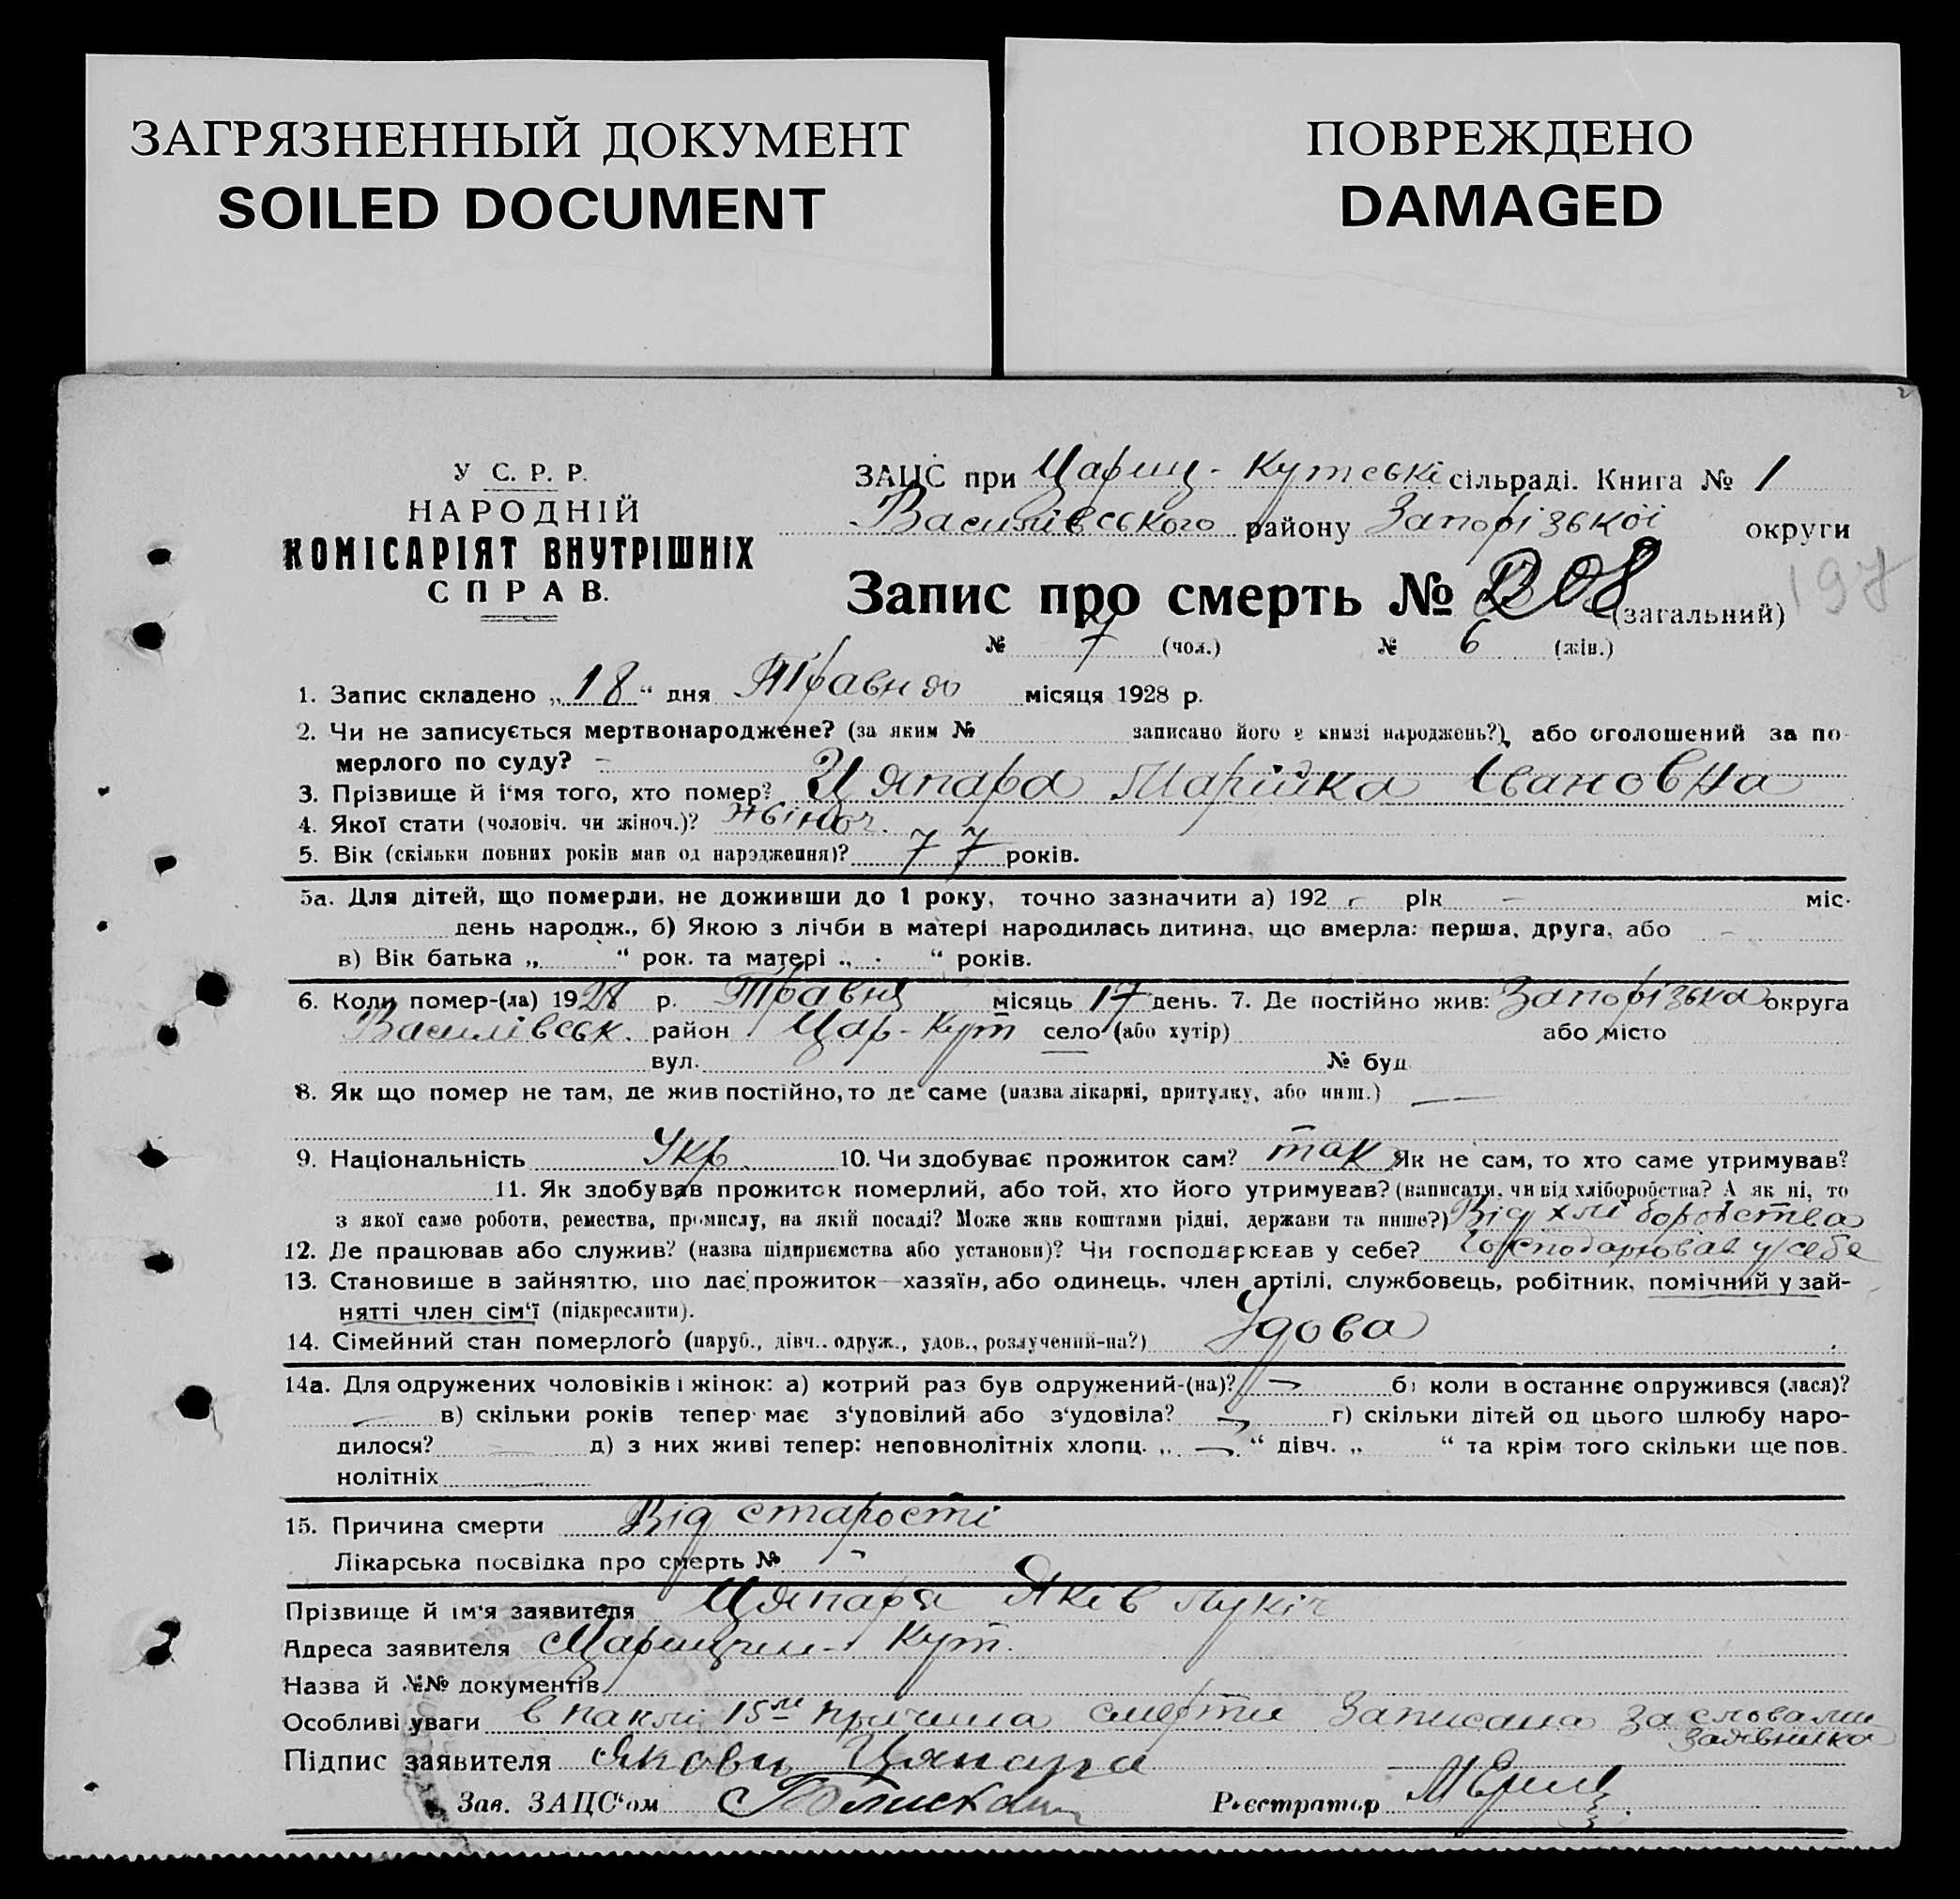 ЗАГРЯЗНЕННЫЙ ДОКУМЕНТ
SOILED DOCUMENT
ПОВРЕЖДЕНО
DAMAGED
У С. Р. Р.
НАРОДНІЙ
КОМІСАРІЯТ ВНУТРІШНІХ
СПРАВ.
ЗАЦС при Цариц-Кутські сільраді. Книга № 1
Василівського району Запорізькоі округи
Запис про смерть № 208 (загальний) 197
№ 7 (чол.) № 6 (жін.)
1. Запис складено „18“ дня Травня місяця 1928 р.
2. Чи не записується мертвонароджене? (за яким № записано його в книзі народжень?), або оголошений за по-
мерлого по суду? -
3. Прізвище й і'мя того, хто помер? Цяпара Марійка Івановна
4. Якої стати (чоловіч. чи жіноч.)? Жіноч.
5. Вік (скільки повних років мав од народження)? 77 років.
5а. Для дітей, що померли, не доживши до 1 року, точно зазначити а) 192 - рік - міс.
день народж., б) Якою з лічби в матері народилась дитина, що вмерла: перша, друга, або -
в) Вік батька „ “ рок. та матері „ “ років.
6. Коли помер-(ла) 1928 р. Травня місяць 17 день. 7. Де постійно жив: Запорізька округа
Василівськ. район Цар-Кут село (або хутір) або місто
вул. № буд.
8. Як що помер не там, де жив постійно, то де саме (назва лікарні, притулку, або инш.) —
9. Національність Укр. 10. Чи здобуває прожиток сам? так Як не сам, то хто саме утримував?
11. Як здобував прожиток померлий, або той, хто його утримував? (написати, чи від хліборобства? А як ні, то
з якої саме роботи, ремества, промислу, на якій посаді? Може жив коштами рідні, держави та инше?) Від хліборобства
12. Де працював або служив? (назва підприємства або установи)? Чи господарював у себе? Господарював у себе
13. Становище в зайняттю, що дає прожиток—хазяїн, або одинець, член артілі, службовець, робітник, помічний у зай-
нятті член сім'ї (підкреслити).
14. Сімейний стан померлого (паруб., дівч., одруж., удов., розлучений-на?) Удова
14а. Для одружених чоловіків і жінок: а) котрий раз був одружений-(на)? — б) коли востаннє одружився (лася)?
— в) скільки років тепер має з'удовілий або з'удовіла? — г) скільки дітей од цього шлюбу наро-
дилося? — д) з них живі тепер: неповнолітніх хлопц. „ — “ дівч. „ “ та крім того скільки ще пов.
нолітніх —
15. Причина смерти Від старості
Лікарська посвідка про смерть № -
Прізвище й ім'я заявителя Цяпара Яків Лукіч
Адреса заявителя Царицин-Кут.
Назва й №№ документів
Особливі уваги в пакті 15м причина смерти записана за словами
заявника
Підпис заявителя Яковь Цяпара
Зав. ЗАЦС'ом
Реєстратор